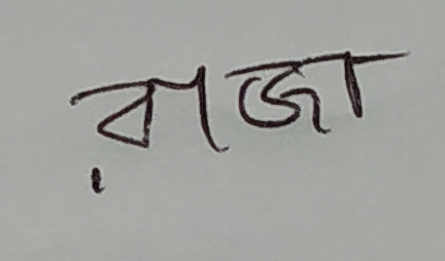 রাজা